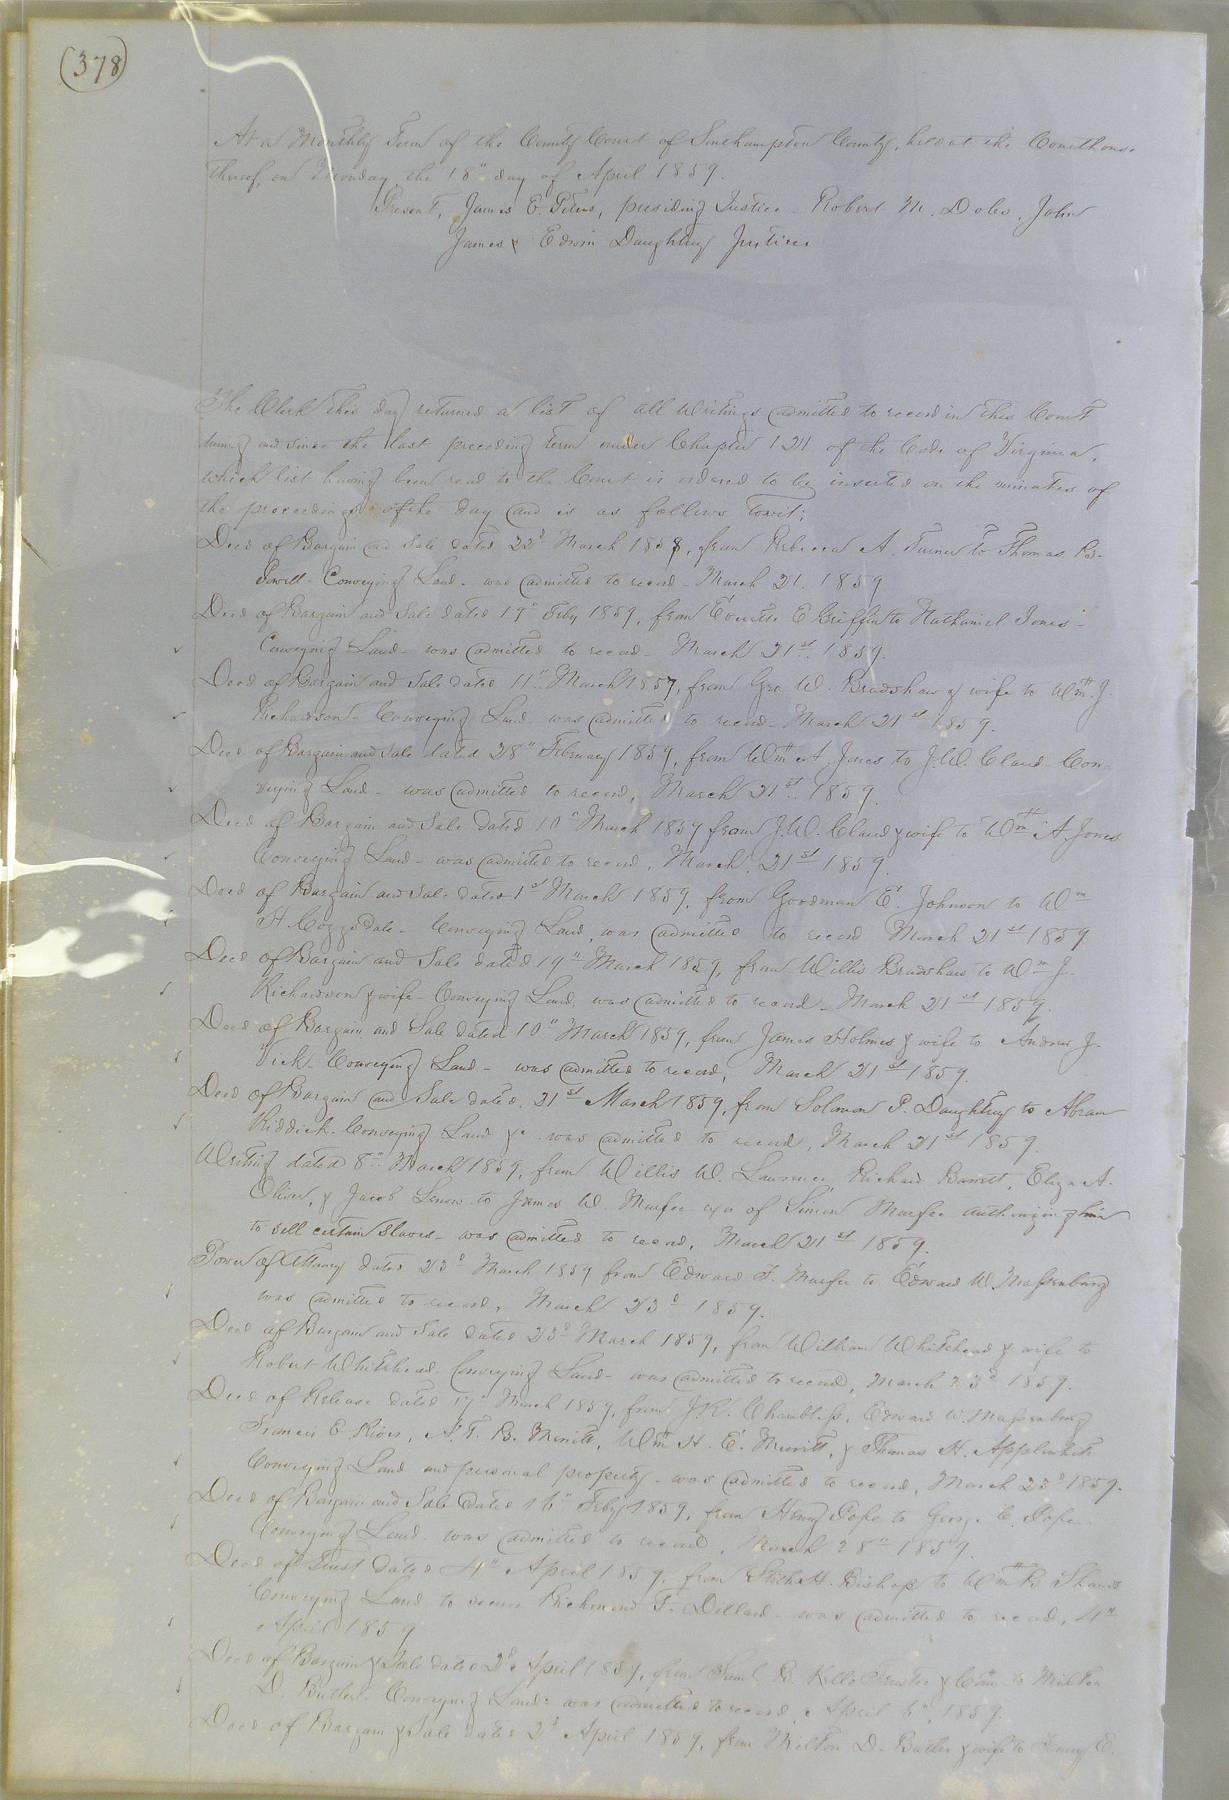 (378)
At a Monthly Term of the County Court of Southampton County, held at the Courthouse
thereof, on Monday the 18" day of April 1859.
Present, James E. Peters, presiding Justice - Robert M. Doles, John
James & Edwin Daughtrey Justices
The Clerk this day returned a list of all writings admitted to record in this Court
during and since the last preceding term under Chapter 121 of the Code of Virginia,
which list having been read to the Court is ordered to be inserted on the minutes of
the proceedings of the day and is as follows towit;
Deed of Bargain and Sale dated 22d March 1858, from Rebecca A. Turner to Thomas
Powell - Conveying Land - was admitted to record - March 21. 1859
Deed of Bargain and Sale dated 19" Feby 1859, from Everette E Griffin to Nathaniel Jones -
Conveying Land - was admitted to record - March 21st 1859.
Deed of Bargain and Sale dated 11" March 1857, from Geo. W. Bradshaw & wife to Wm. J.
Richardson - Conveying Land - was admitted to record - March 21st 1859.
Deed of Bargain and Sale dated 28" February 1859, from Wm A. Jones to J.W. Claud - Con-
veying Land - was admitted to record, March 21st 1859.
Deed of Bargain and Sale dated 10" March 1859 from J.W. Claud & wife to Wm A. Jones
Conveying Land - was admitted to record, March 21st 1859.
Deed of Bargain and Sale dated 1st March 1859, from Goodman E. Johnson to Wm
H. Coggsdale - Conveying Land, was admitted to record March 21st 1859
Deed of Bargain and Sale dated 19" March 1859, from Willis Bradshaw to Wm J.
Richardson & wife - Conveying Land, was admitted to record - March 21st 1859.
Deed of Bargain and Sale dated 10" March 1859, from James Holmes & wife to Andrew J.
Vick - Conveying Land - was admitted to record, March 21st 1859.
Deed of Bargain and Sale dated 21st March 1859, from Solomon P. Daughtrey to Abram
Riddick - Conveying Land &c. was admitted to record, March 21st 1859.
Writing dated 8" March 1859, from Willis W. Lawrence, Richard Barrett, Eliza A.
Oliver, & Jacob Senow to James W. Murfee exr of Simon Murfee authorizing him
to sell certain slaves - was admitted to record, March 21st 1859.
Power of Attorney dated 23d March 1859 from Edward F. Murfee to Edward W. Massenburg
was admitted to record, March 23d 1859.
Deed of Bargain and Sale dated 23d March 1859, from William Whitehead & wife to
Robert Whitehead - Conveying Land - was admitted to record, March 23d 1859.
Deed of Release dated 17" March 1859, from J.R. Chambliss, Edward W. Massenburg
Francis E Rives, A. T. B. Merritt, Wm H. E. Merritt, & Thomas H. Applewhite
Conveying Land and personal property - was admitted to record, March 23d 1859.
Deed of Bargain and Sale dated 16" Feby 1859, from Henry Pope to George C. Pope
Conveying Land - was admitted to record, March 28" 1859.
Deed of Trust dated 4" April 1859, from H. Bishop to Wm B. Shands
Conveying Land to secure Richmond F. Dillard - was admitted to record, 4"
April 1859
Deed of Bargain & Sale dated 2d April 1859, from Saml. B. Kello Trustee & Com. to Milton
D. Butler - Conveying Land - was admitted to record, April 6" 1859.
Deed of Bargain & Sale dated 2d April 1859, from Milton D. Butler & wife to Henry E.